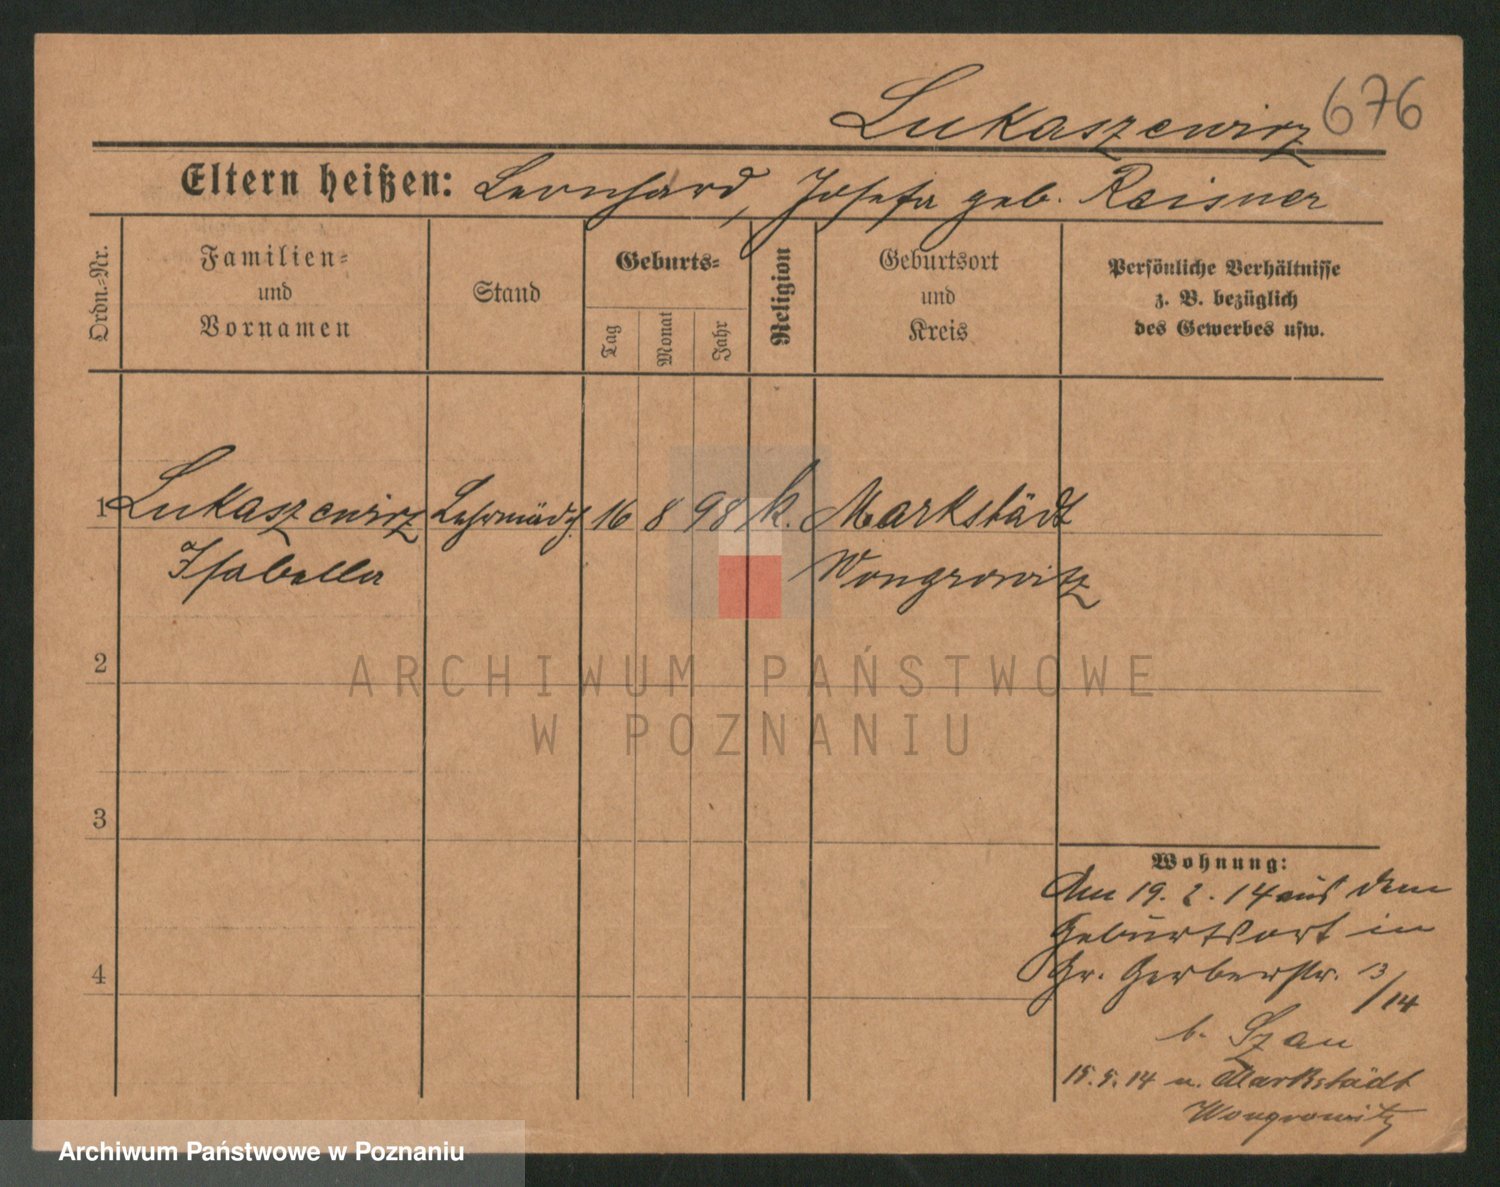 Lukaszewicz 676
Eltern heißen: Leonhard, Josefa geb. Reisner
Ordn.-Nr.
Familien-
und
Vornamen
Stand
Geburts-
Tag
Monat
Jahr
Religion
Geburtsort
und
Kreis
Persönliche Verhältnisse
z. B. bezüglich
des Gewerbes usw.
1 Lukaszewicz Lehrmädch. 16 8 98 k. Markstädt
Isabella Wongrowitz
2
ARCHIWUM PAŃSTWOWE
W POZNANIU
3
Wohnung:
Am 19. 2. 14 aus dem
Geburtsort in
4 Gr. Gerberstr. 13/14
b. Szau
15. 5. 14 n. Markstädt
Wongrowitz
Archiwum Państwowe w Poznaniu